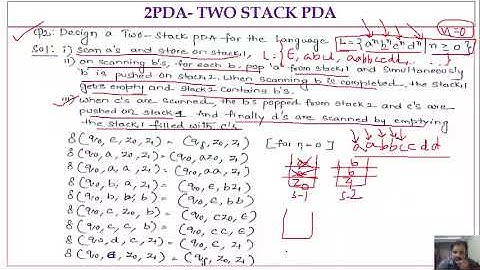 2PDA- TWO STACK PDA
Q12: Design a Two-Stack PDA for the Language L = {aⁿbⁿcⁿdⁿ | n ≥ 0} n=0
Sol: i) scan a's and store on stack1, L = {ε, abcd, aabbccdd, ...
ii) on scanning b's, for each b, pop 'a' from stack1 and simultaneously
'b' is pushed on stack2. when scanning b is completed, the stack1
gets empty and stack2 contains b's.
iii) when c's are scanned, the b's popped from stack2 and c's are
pushed on stack1. And finally d's are scanned by emptying
the stack1 filled with c's
δ(q0, ε, z0, z1) = (qf, z0, z1) [for n=0]
aabbccdd
δ(q0, a, z0, z1) = (q0, az0, z1)
δ(q0, a, a, z1) = (q0, aa, z1)
δ(q0, b, a, z1) = (q0, ε, bz1)
δ(q0, b, b) = (q0, ε, bb)
δ(q0, c, z0, b) = (q0, cz0, ε)
δ(q0, c, c, b) = (q0, cc, ε)
δ(q0, d, c, z1) = (q0, ε, z1)
δ(q0, z0, z1) = (qf, z0, z1)
z0
b
b
z1
s-1 s-2